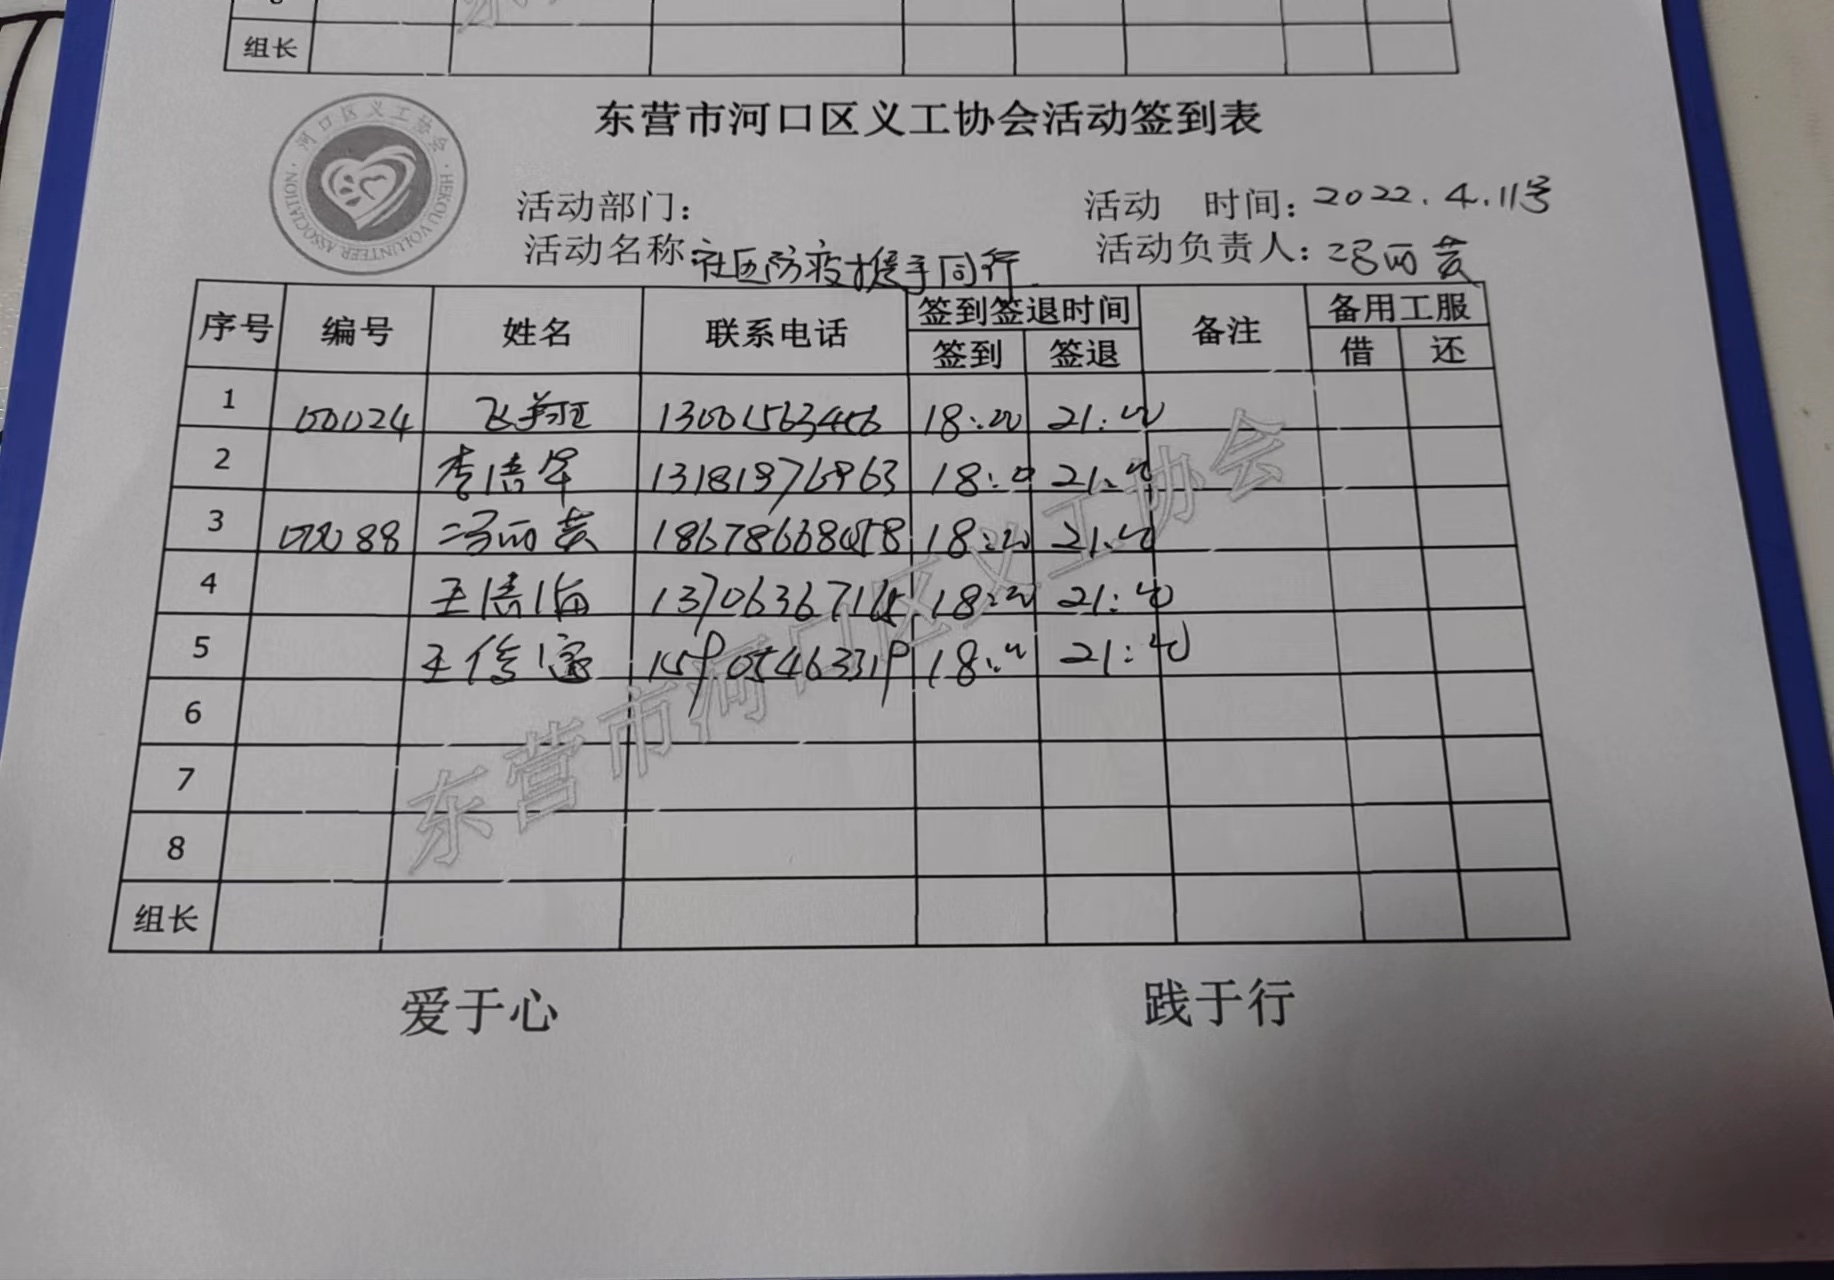 组长
东营市河口区义工协会活动签到表
河口区义工协会 · HEKOU VOLUNTEER ASSOCIATION ·
活动部门： 活动 时间：2022.4.11号
活动名称 社区防疫携手同行 活动负责人：冯丽英
序号 编号 姓名 联系电话 签到签退时间 备注 备用工服
签到 签退 借 还
1 00024 飞翔 18:20 21:40
2 李 13181976963 18:20 21:40
3 88 冯丽英 18:20 21:40
4 王 18:20 21:40
5 王 15905463319 18:20 21:40
6
7
8
组长
东营市河口区义工协会
爱于心 践于行